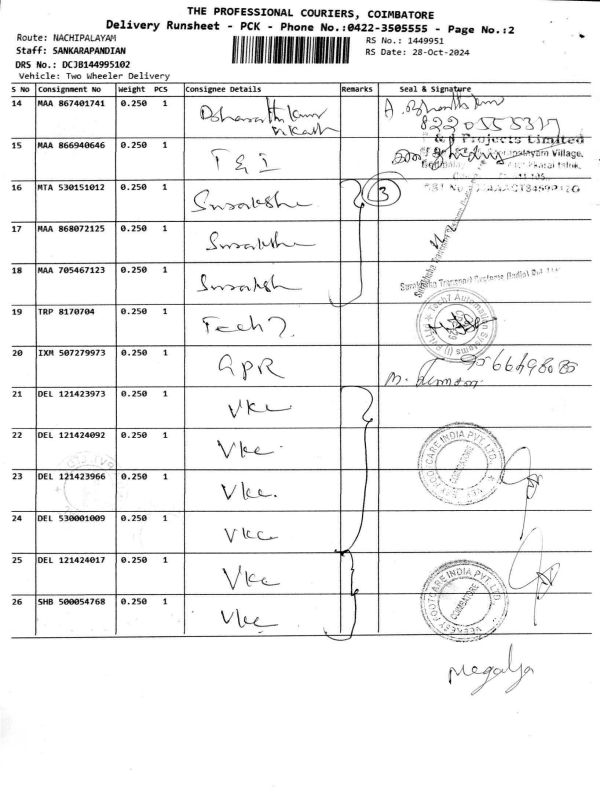 THE PROFESSIONAL COURIERS, COIMBATORE
Delivery Runsheet - PCK - Phone No.:0422-3505555 - Page No.:2
Route: NACHIPALAYAM
RS No.: 1449951
Staff: SANKARAPANDIAN
RS Date: 28-Oct-2024
DRS No.: DCJB144995102
Vehicle: Two Wheeler Delivery
S No Consignment No Weight PCS Consignee Details Remarks Seal & Signature
14 MAA 867401741 0.250 1
15 MAA 866940646 0.250 1 T & I
Projects Limited
Village,
16 MTA 530151012 0.250 1 Suraksha
3
17 MAA 868072125 0.250 1 Suraksha
18 MAA 705467123 0.250 1 Suraksh
19 TRP 8170704 0.250 1 Tech 7.
20 IXM 507279973 0.250 1 GPR
21 DEL 121423973 0.250 1 Vkc
22 DEL 121424092 0.250 1 Vkc
FOOTCARE INDIA PVT. LTD.
COIMBATORE
23 DEL 121423966 0.250 1 Vkc.
24 DEL 530001009 0.250 1 Vkc
25 DEL 121424017 0.250 1 Vkc
26 SHB 500054768 0.250 1 Vkc
VEEKESY FOOTCARE INDIA PVT. LTD.
COIMBATORE
Megalya